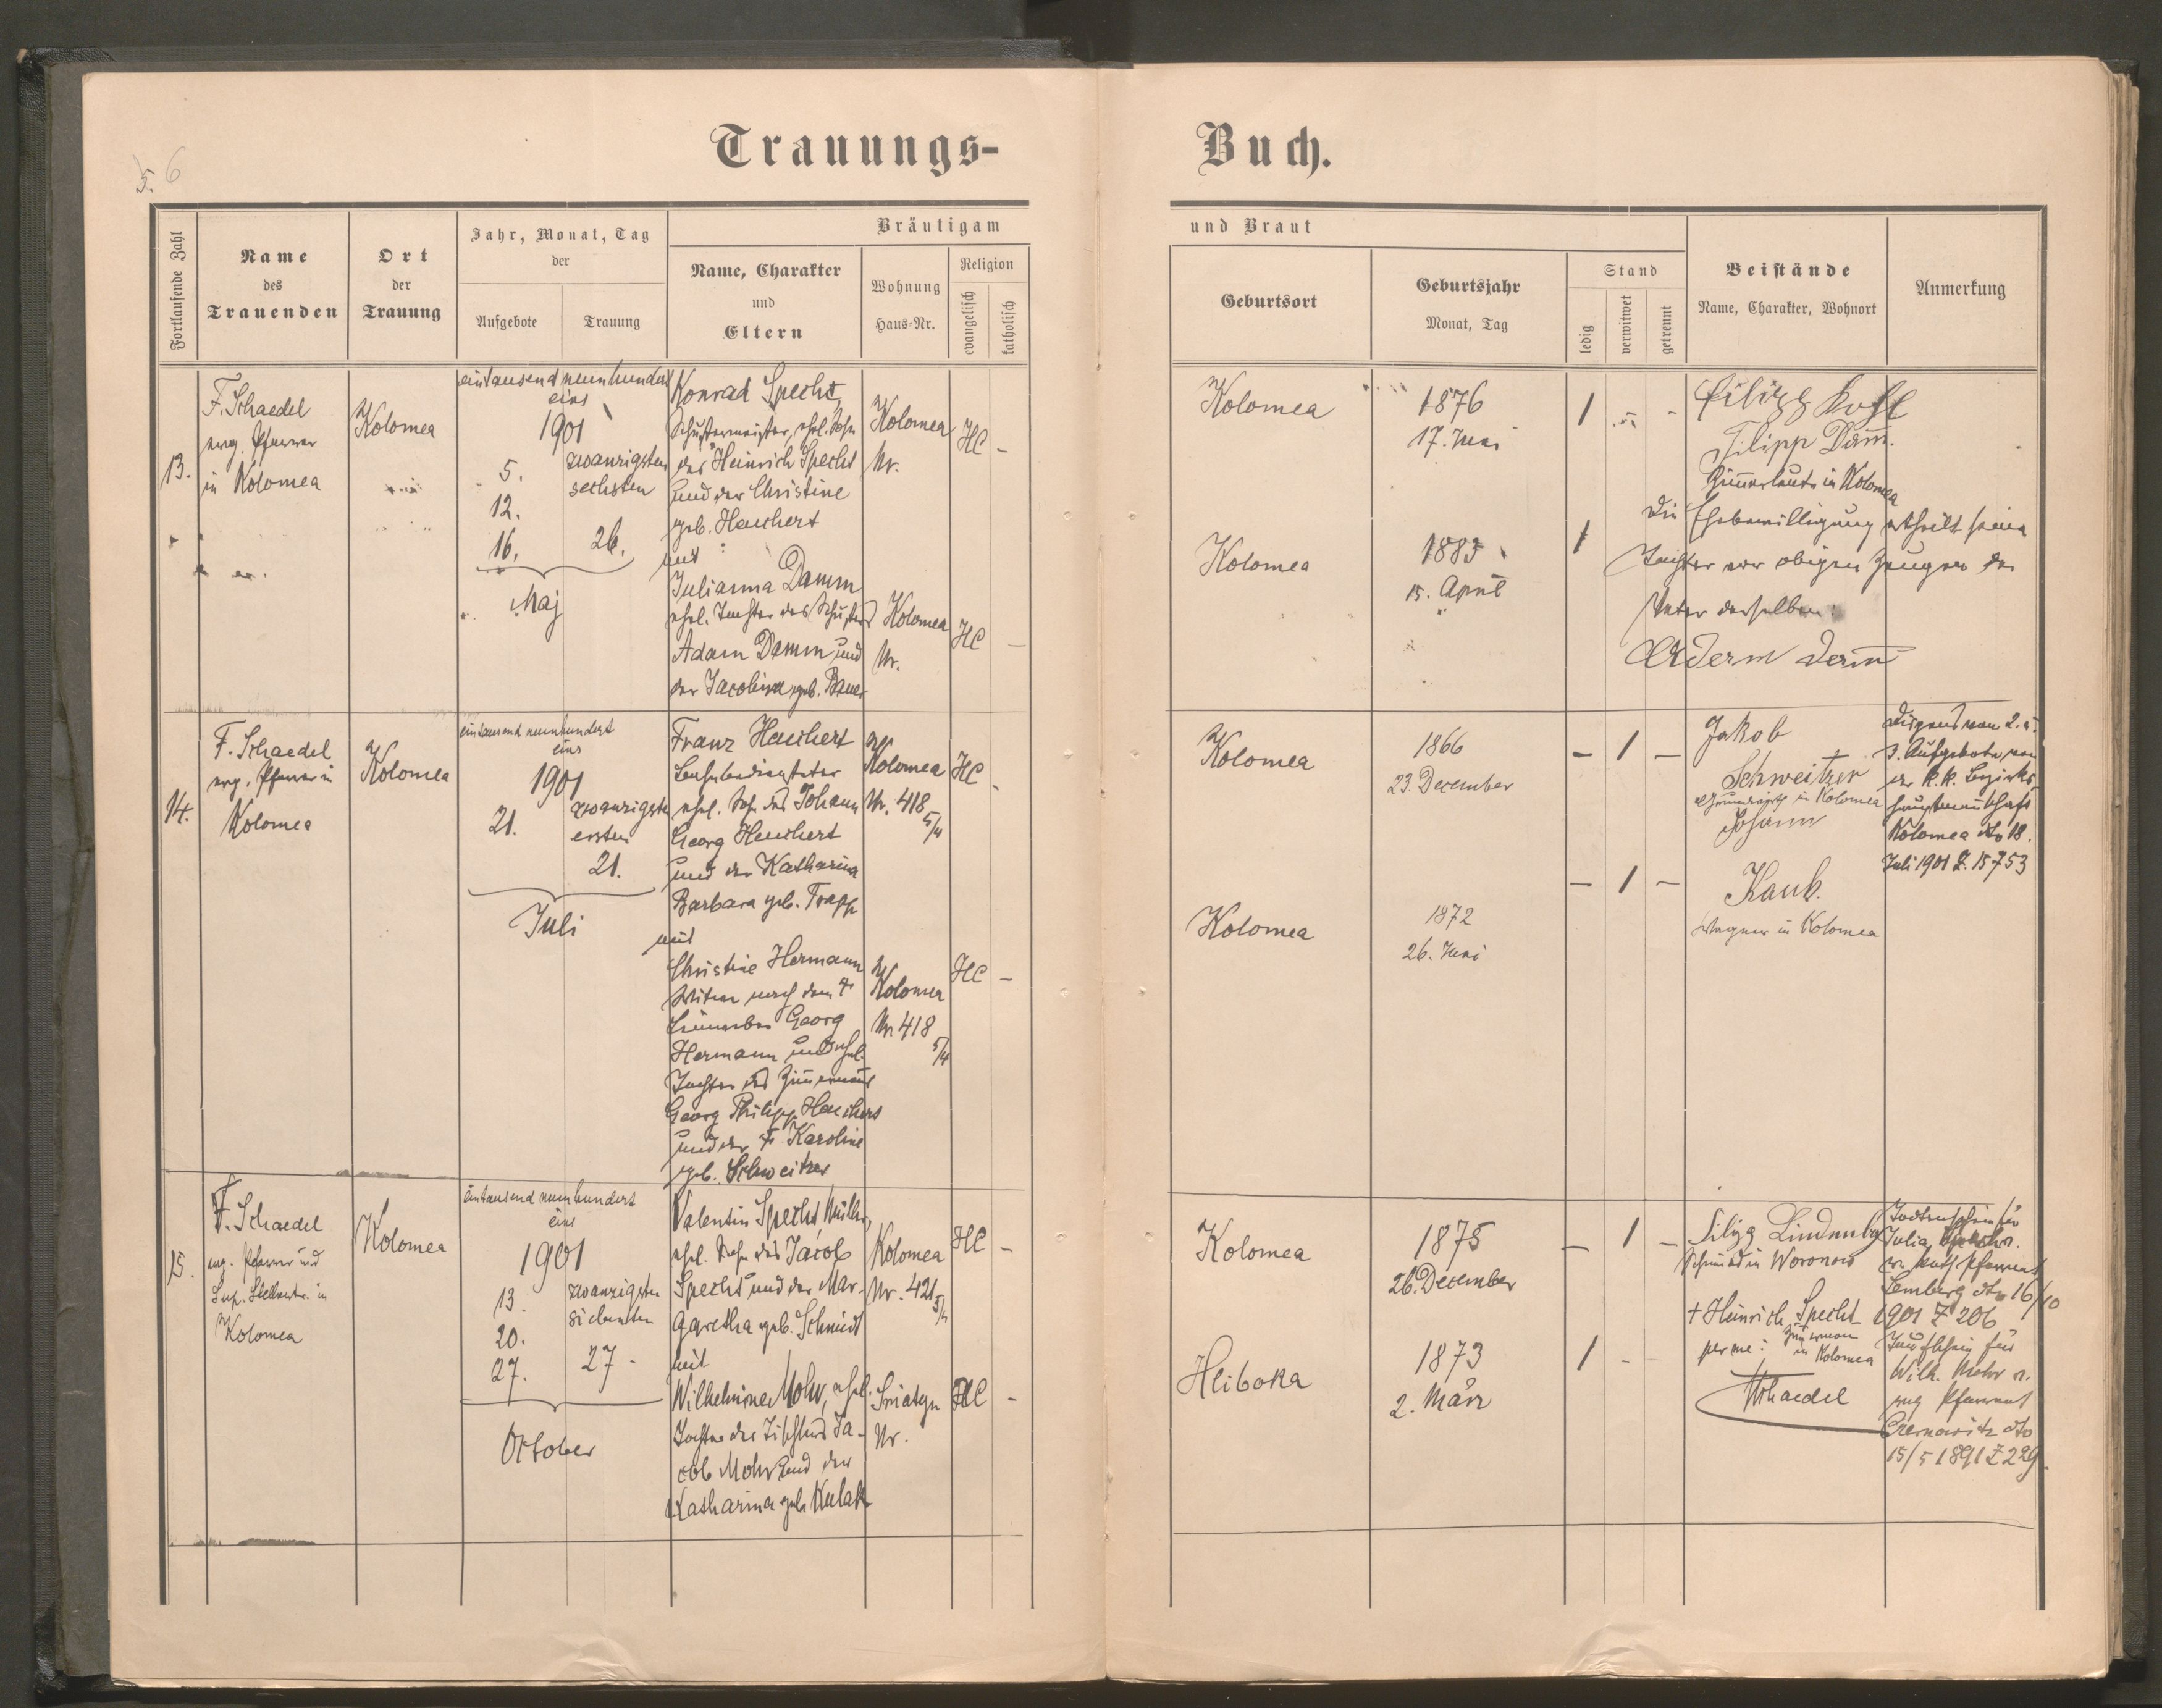 5. 6
Trauungs-
Buch.
Fortlaufende Zahl
Name
des
Trauenden
Ort
der
Trauung
Jahr, Monat, Tag
der
Aufgebote
Trauung
Bräutigam
Name, Charakter
und
Eltern
Wohnung
Haus-Nr.
Religion
evangelisch
katholisch
und Braut
Geburtsort
Geburtsjahr
Monat, Tag
Stand
ledig
verwitwet
getrennt
Beistände
Name, Charakter, Wohnort
Anmerkung
13.
F. Schaedel
evg. Pfarrer
in Kolomea
Kolomea
eintausend neunhundert
eins
1901
5.
12.
16.
zwanzigsten
sechsten
26.
Maj
Konrad Specht,
Schustermeister, ehel. Sohn
des Heinrich Specht
und der Christine
geb. Heuchert
mit
Julianna Damm
ehel. Tochter des Schusters
Adam Damm und
der Jacobina geb. Bauer
Kolomea
Nr.
HC -
Kolomea
Nr.
HC -
Kolomea
1876
17. Juni
1
Kolomea
1883
15. April
1
Filipp
Filipp Dam̅.
Zim̅erleute in Kolomea
Die Ehebewilligung ertheilt seiner
Tochter vor obigen Zeugen der
Vater derselben:
14.
F. Schaedel
evg. Pfarrer in
Kolomea
Kolomea
eintausend neunhundert
eins
1901
21.
zwanzigsten
ersten
21.
Juli
Franz Heuchert
Bahnbediensteter
ehel. Sohn des Johann
Georg Heuchert
und der Katharina
Barbara geb. Trapp
mit
Christine Hermann
Witwe nach dem †
Georg
Hermann und ehel.
Tochter des Zim̅ermanns
Georg Philipp Heuchert
und der † Karoline
geb. Schweitzer
Kolomea
Nr. 418
5/4
HC -
Kolomea
Nr. 418
5/4
HC -
Kolomea
1866
23. December
- 1 -
Kolomea
1872
26. Juni
- 1 -
Jakob
Schweitzer
Grundwirth in Kolomea
Johann
Kaub.
Wagner in Kolomea
Dispens vom 2. u.
3. Aufgebote von
der k.k. Bezirks
hauptmannschaft
Kolomea dto 18.
Juli 1901 Z. 15753
15.
F. Schaedel
evg. Pfarrer und
Sup. Stellvertr. in
Kolomea
Kolomea
eintausend neunhundert
eins
1901
13.
20.
27.
zwanzigsten
siebenten
27.
October
Valentin Specht, Müller,
ehel. Sohn des Jacob
Specht und der Mar-
garetha geb. Schmidt
mit
Wilhelmine Mohr, ehel.
Tochter des Tischlers Ja-
cob Mohr und der
Katharina geb. Kulak
Kolomea
Nr. 421
5/4
HC -
Sniatyn
Nr.
HC -
Kolomea
1875
26. December
- 1 -
Hliboka
1873
2. März
1 -
Filipp Lindenba
Schmied in Woronow
+ Heinrich Specht
Zim̅erman
in Kolomea
per me:
FSchaedel
Todtenschein für
Julia
Lemberg dto 16/10
1901 Z 206
Taufschein für
Wilh. Mohr v.
evg Pfarramt
Czernowitz dto
15/5 1891 Z 229.